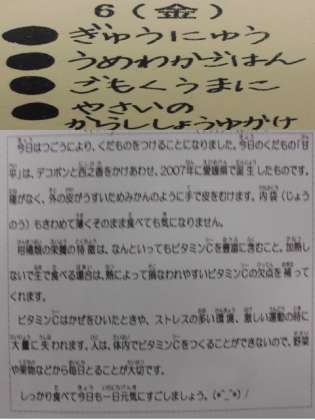 6（金）
ぎゅうにゅう
うめわかごはん
ごもくうまに
やさいの
からししょうゆかけ
今日はつごうにより、くだものをつけることになりました。今日のくだもの「甘
平」は、デコポンと西之香をかけあわせ、2007年に愛媛県で誕生したものです。
種がなく、外の皮がうすいためみかんのように手で皮をむけます。内袋（じょう
のう）もきわめて薄くそのまま食べても気になりません。
柑橘類の栄養の特徴は、なんといってもビタミンCを豊富に含むこと。加熱し
ないで生で食べる場合は、熱によって損なわれやすいビタミンCの欠点を補って
くれます。
ビタミンCはかぜをひいたときや、ストレスの多い環境、激しい運動の時に
大量に失われます。人は、体内でビタミンCをつくることができないので、野菜
や果物などから毎日とることが大切です。
しっかり食べて今日も一日元気にすごしましょう。(*^_^*)/